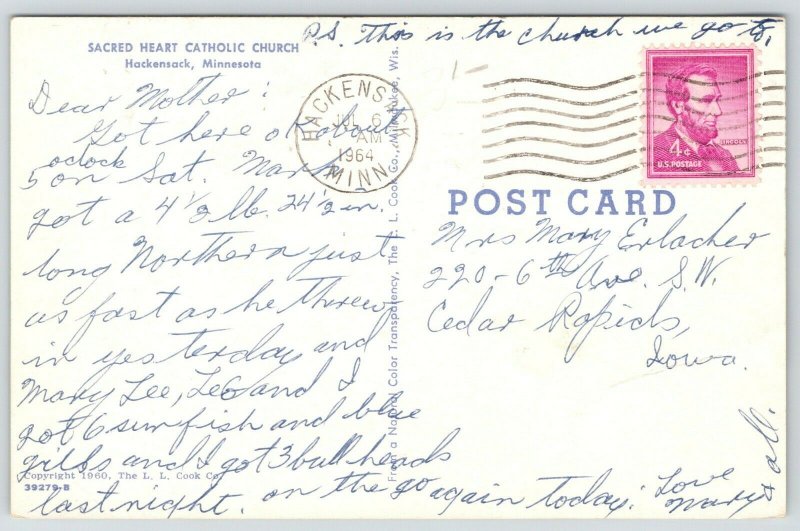 P.S. This is the church we go to,
SACRED HEART CATHOLIC CHURCH
Hackensack, Minnesota
Dear Mother:
Got here ok about
5 oclock on Sat. Mark
got a 4 1/2 lb. 24 1/2 in.
long Northern just
as fast as he threw
in yesterday and
Mary Lee, Leo and I
got 6 sunfish and blue
gills and I got 3 bull heads
last night. on the go again today.
Love
Mary & all.
Copyright 1960, The L. L. Cook Co.
39279-B
From a Natural Color Transparency, The L. L. Cook Co., Milwaukee, Wis.
HACKENSACK
JUL 6
AM
1964
MINN.
4¢
LINCOLN
U.S. POSTAGE
POST CARD
Mrs Mary Erlacher
220-6th Ave. S.W.
Cedar Rapids,
Iowa.